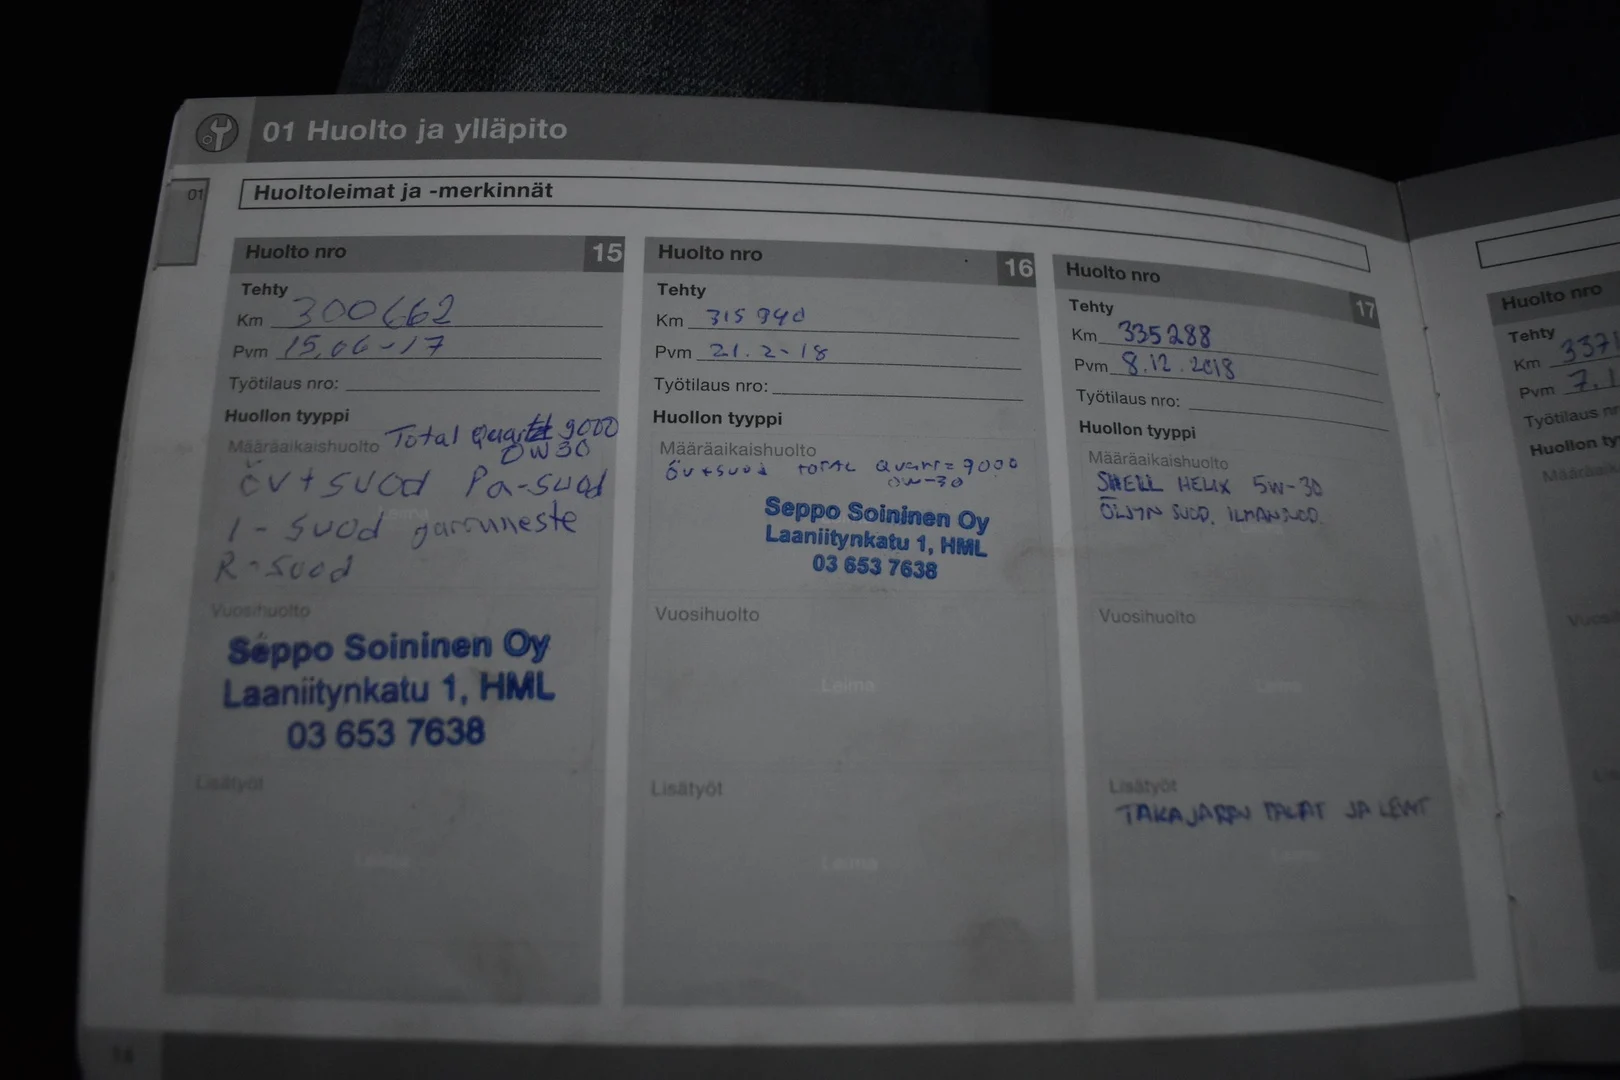 01 Huolto ja ylläpito
01
Huoltoleimat ja -merkinnät
Huolto nro 15
Tehty
Km 300662
Pvm 15.06-17
Työtilaus nro:
Huollon tyyppi
Määräaikaishuolto Total quartz 9000
0W30
öv+suod Pa-suod
I-suod jarruneste
R-suod
Leima
Vuosihuolto
Seppo Soininen Oy
Laaniitynkatu 1, HML
03 653 7638
Lisätyöt
Leima
Huolto nro 16
Tehty
Km 315940
Pvm 21.2-18
Työtilaus nro:
Huollon tyyppi
Määräaikaishuolto
öv+suod TOTAL Quartz 9000
0W-30
Seppo Soininen Oy
Laaniitynkatu 1, HML
03 653 7638
Vuosihuolto
Leima
Lisätyöt
Leima
Huolto nro 17
Tehty
Km 335288
Pvm 8.12.2018
Työtilaus nro:
Huollon tyyppi
Määräaikaishuolto
SHELL HELIX 5W-30
ÖLJYN SUOD. ILMANSUOD.
Leima
Vuosihuolto
Leima
Lisätyöt
TAKAJARRU PALAT JA LEVYT
Leima
Huolto nro
Tehty
Km 3371
Pvm 7.1
Työtilaus nr
Huollon ty